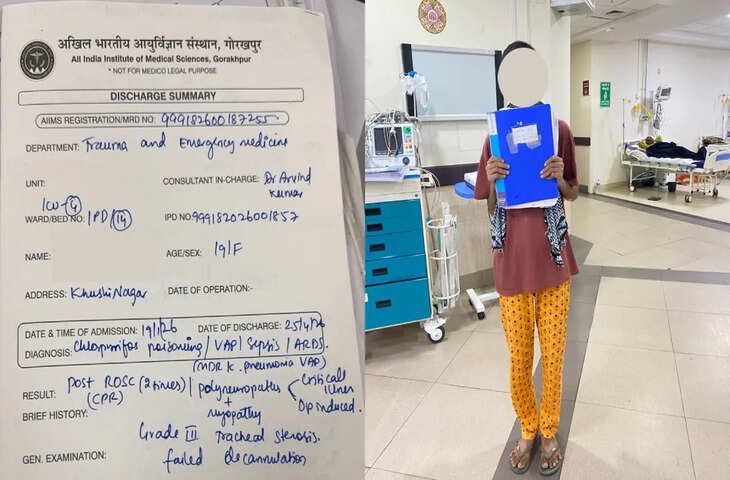 अखिल भारतीय आयुर्विज्ञान संस्थान, गोरखपुर
All India Institute of Medical Sciences, Gorakhpur
* NOT FOR MEDICO LEGAL PURPOSE
DISCHARGE SUMMARY
AIIMS REGISTRATION/MRD NO: 999182600187255
DEPARTMENT: Trauma and Emergency medicine
UNIT: CONSULTANT IN-CHARGE: Dr Arvind Kumar
ICU-4
WARD/BED NO: IPD/14 IPD NO: 999182026001857
NAME: AGE/SEX: 19/F
ADDRESS: Khushi Nagar DATE OF OPERATION:-
DATE & TIME OF ADMISSION: 19/1/26 DATE OF DISCHARGE: 25/4/26
DIAGNOSIS: poisoning / VAP / Sepsis / ARDS.
(MDR K. pneumonia VAP)
RESULT: post ROSC (2 times) / polyneuropathy Critical illness
(CPR) + Op induced.
BRIEF HISTORY: myopathy
Grade III Tracheal stenosis.
GEN. EXAMINATION: failed decannulation